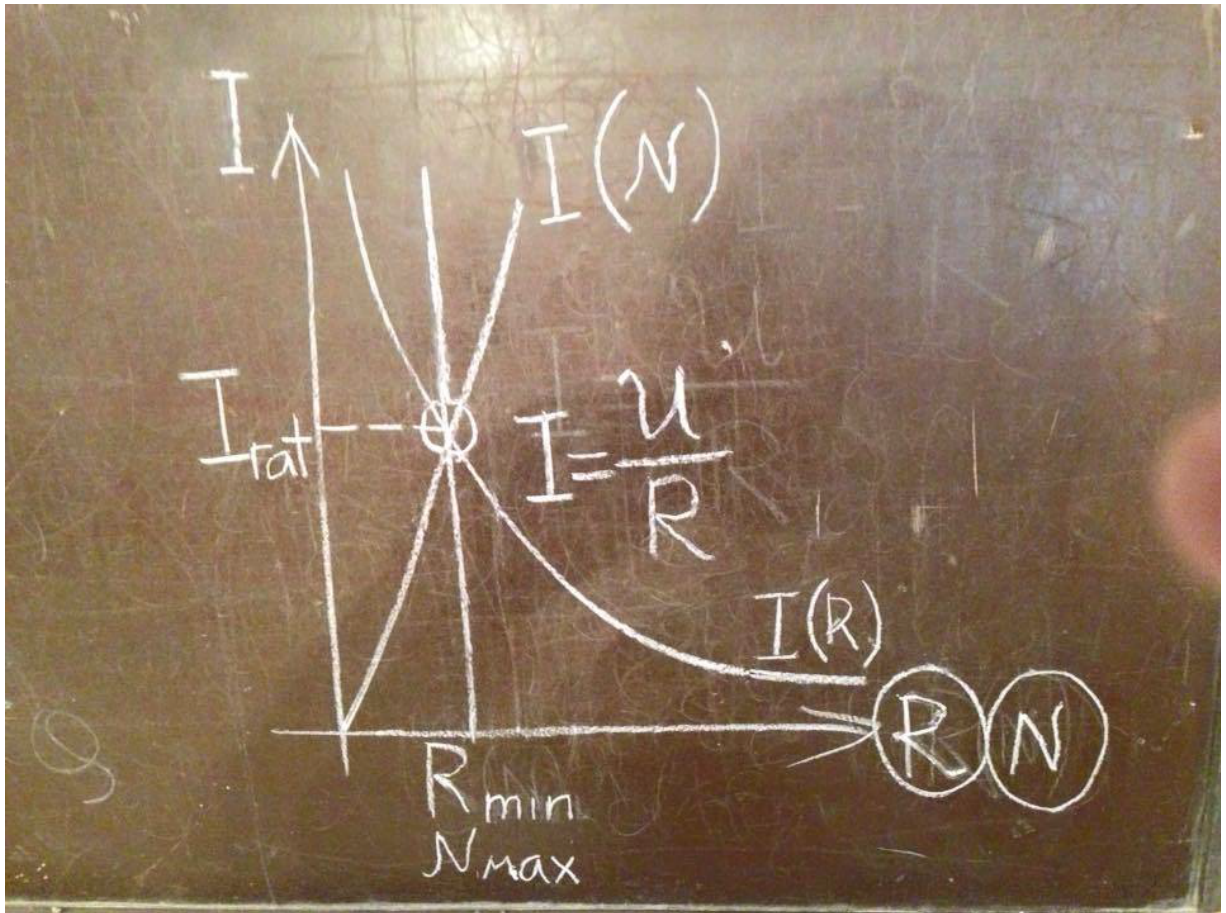 I
I(N)
I_rat
I = U/R
I(R)
R N
R min
N max